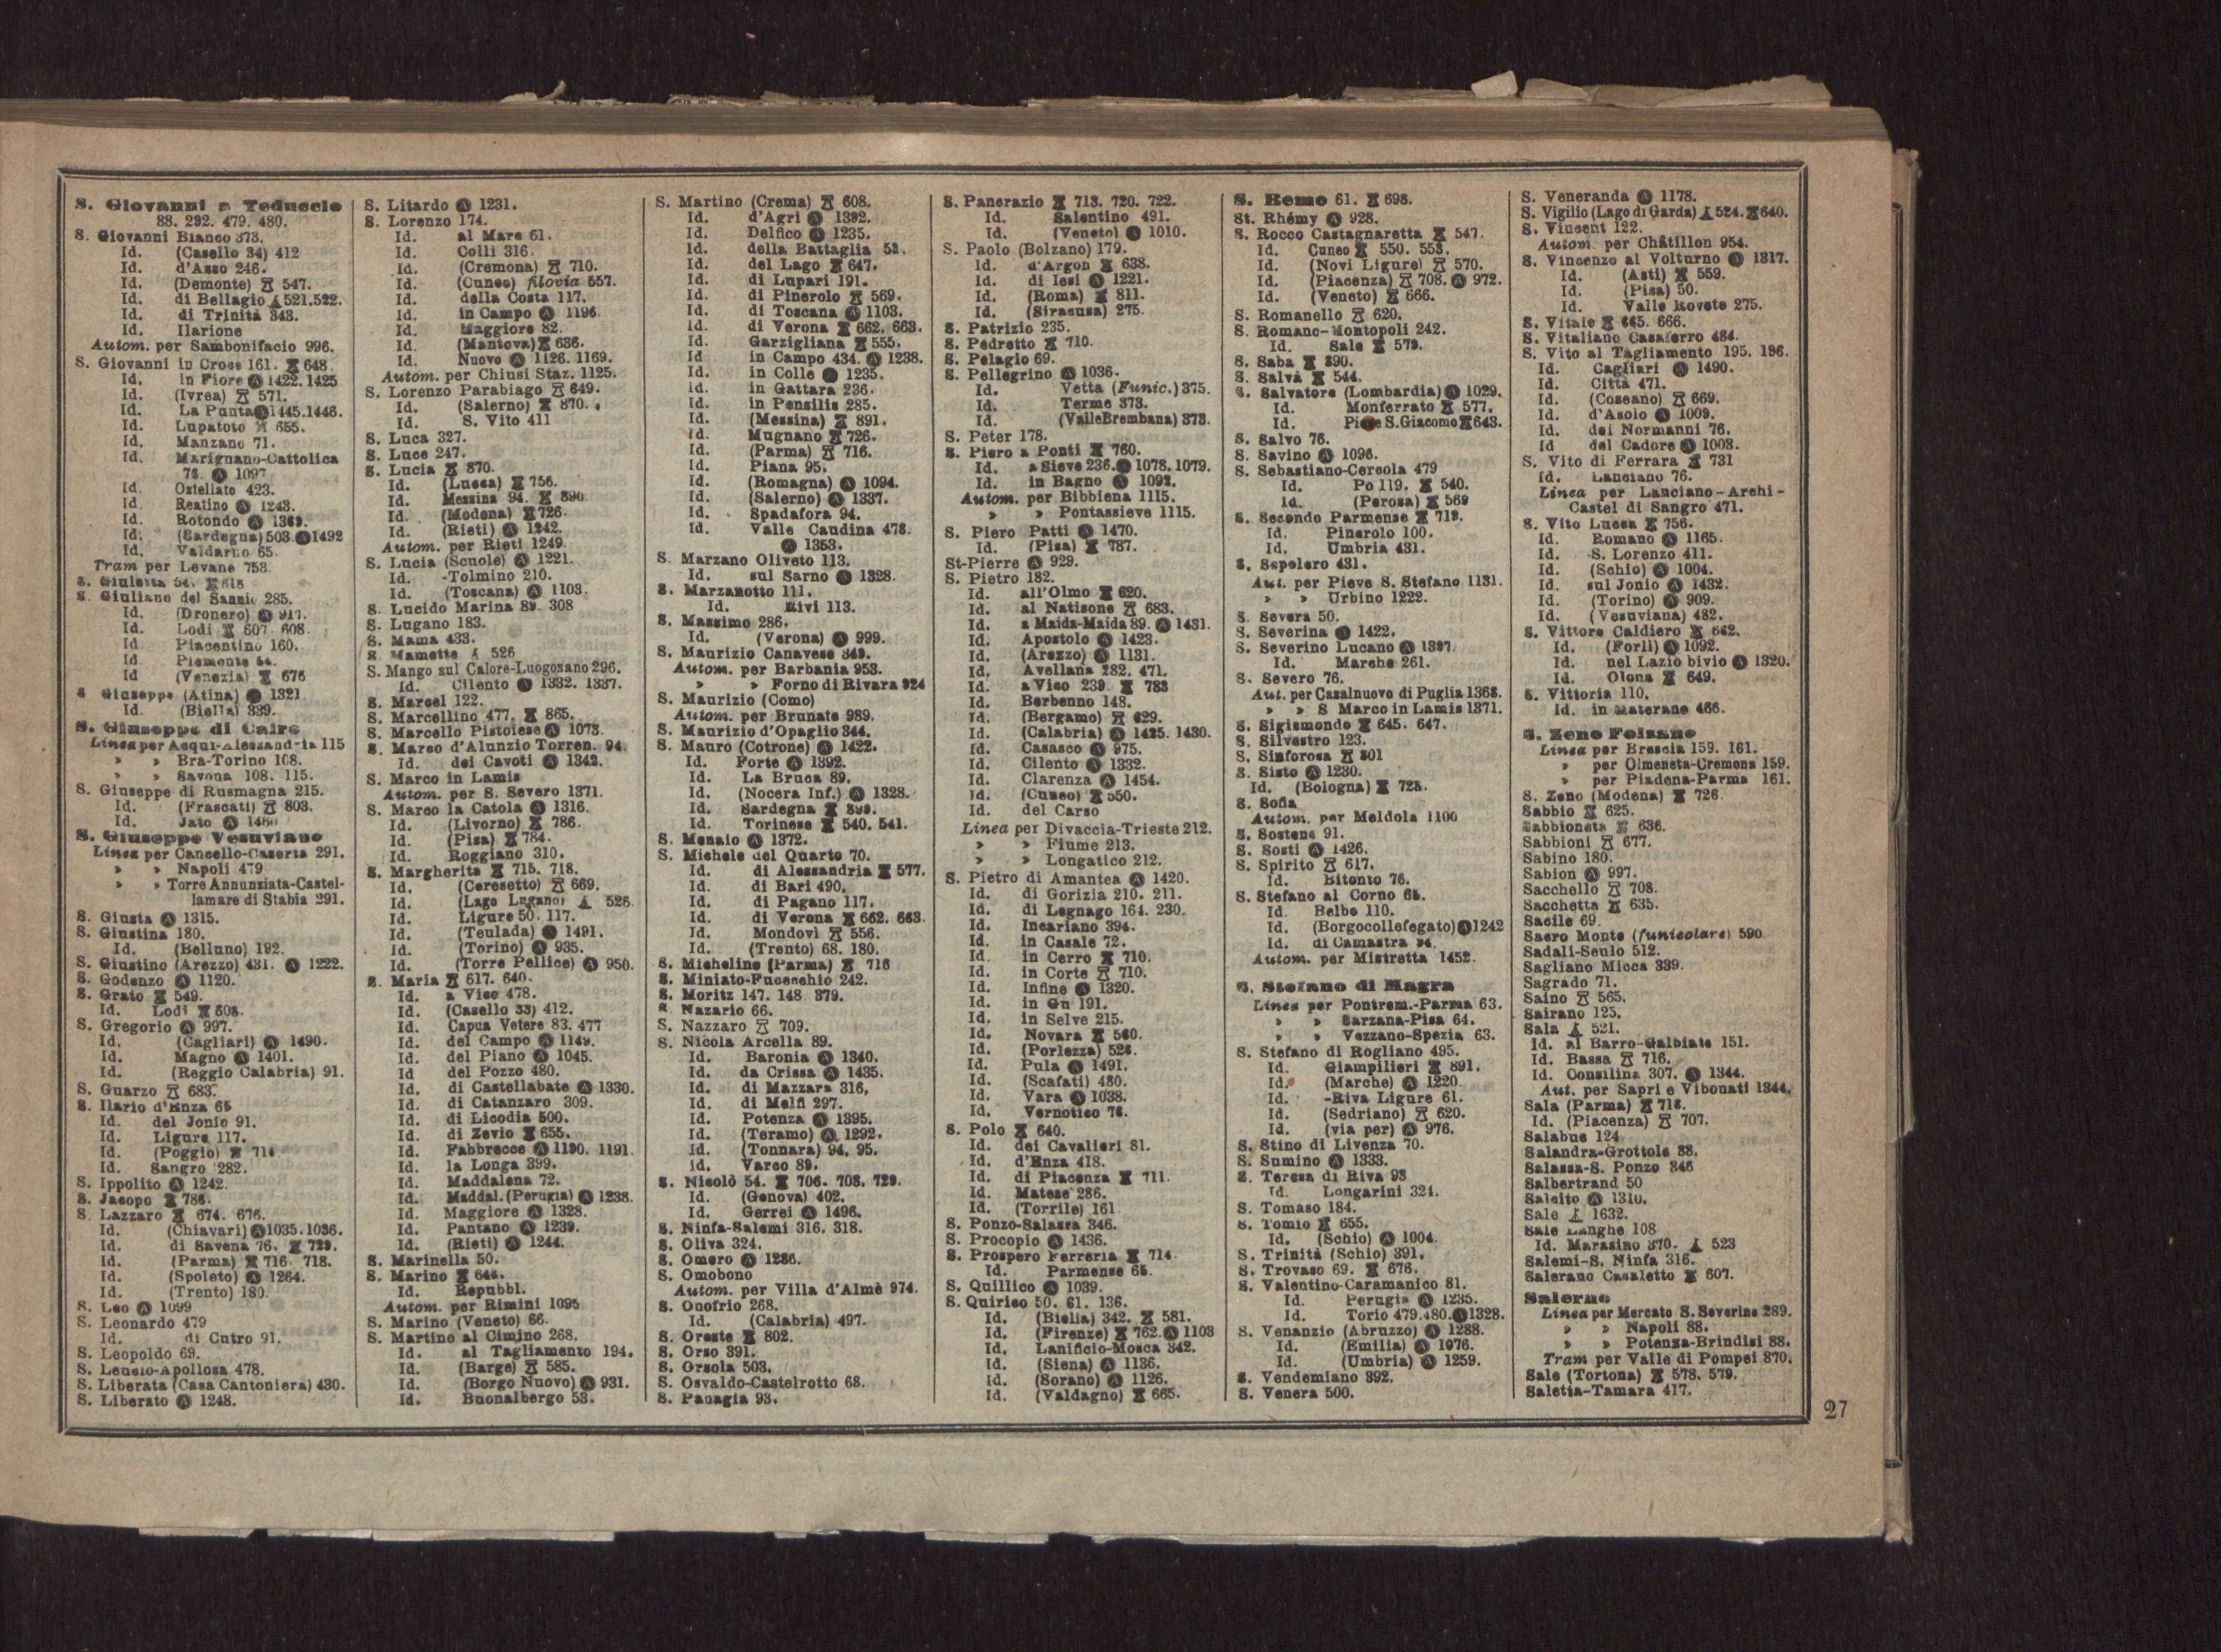 S. Giovanni a Teduccio
88. 292. 479. 480.
S. Giovanni Bianco 373.
Id. (Casello 34) 412
Id. d'Asso 246.
Id. (Demonte) 547.
Id. di Bellagio 521.522.
Id. di Trinità 343.
Id. Ilarione
Autom. per Sambonifacio 996.
S. Giovanni in Croce 161. 648.
Id. in Fiore A 1422. 1425
Id. (Ivrea) 571.
Id. La Punta A 1445.1446.
Id. Lupatoto 655.
Id. Manzano 71.
Id. Marignano-Cattolica
A 1097
Id. Ostellato 423.
Id. Reatino A 1243.
Id. Rotondo A
Id. (Sardegna) 503. A 1492
Id. Valdarno 65.
Tram per Levane 753.
S. Giuletta
S. Giuliano del Sannio 285.
Id. (Dronero) A 917.
Id. Lodi 607. 608.
Id. Piacentino 160.
Id. Piemonte
Id. (Venezia) 676
S. Giuseppe (Atina) A 1321
Id. (Biella) 339.
S. Giuseppe di Cairo
Linea per Acqui-Alessandria 115
» » Bra-Torino 108.
» » Savona 108. 115.
S. Giuseppe di Rusmagna 215.
Id. (Frascati) 803.
Id. Jato A
S. Giuseppe Vesuviano
Linea per Cancello-Caserta 291.
» » Napoli 479
» » Torre Annunziata-Castel-
lamare di Stabia 291.
S. Giusta A 1315.
S. Giustina 180.
Id. (Belluno) 192.
S. Giustino (Arezzo) 431. A 1222.
S. Godenzo A 1120.
S. Grato 549.
Id. Lodi
S. Gregorio A 997.
Id. (Cagliari) A 1490.
Id. Magno A 1401.
Id. (Reggio Calabria) 91.
S. Guarzo 683.
S. Ilario d'Enza 65
Id. del Jonio 91.
Id. Ligure 117.
Id. (Poggio)
Id. Sangro 282.
S. Ippolito A 1242.
S. Jacopo
S. Lazzaro 674. 676.
Id. (Chiavari) A 1035.1036.
Id. di Savena 76.
Id. (Parma) 716. 718.
Id. (Spoleto) A 1264.
Id. (Trento) 180.
S. Leo A 1099
S. Leonardo 479
Id. di Cutro 91.
S. Leopoldo 69.
S. Leucio-Apollosa 478.
S. Liberata (Casa Cantoniera) 430.
S. Liberato A 1248.
S. Litardo A 1231.
S. Lorenzo 174.
Id. al Mare 61.
Id. Colli 316.
Id. (Cremona) 710.
Id. (Cuneo) filovia 557.
Id. della Costa 117.
Id. in Campo A 1196.
Id. Maggiore 82.
Id. (Mantova) 636.
Id. Nuovo A 1126. 1169.
Autom. per Chiusi Staz. 1125.
S. Lorenzo Parabiago 649.
Id. (Salerno) 870.
Id. S. Vito 411
S. Luca 327.
S. Luce 247.
S. Lucia 870.
Id. (Lucca) 756.
Id. Messina 94. 890
Id. (Modena) 726.
Id. (Rieti) A 1242.
Autom. per Rieti 1249.
S. Lucia (Scuole) A 1221.
Id. -Tolmino 210.
Id. (Toscana) A 1103.
S. Lucido Marina 89. 308
S. Lugano 183.
S. Mama 433.
S. Mamette 526
S. Mango sul Calore-Luogosano 296.
Id. Cilento A 1332. 1337.
S. Marcel 122.
S. Marcellino 477. 865.
S. Marcello Pistoiese A 1073.
S. Marco d'Alunzio Torren. 94.
Id. dei Cavoti A 1342.
S. Marco in Lamis
Autom. per S. Severo 1371.
S. Marco la Catola A 1316.
Id. (Livorno) 786.
Id. (Pisa) 784.
Id. Roggiano 310.
S. Margherita 715. 718.
Id. (Ceresetto) 669.
Id. (Lago Lugano) 526.
Id. Ligure 50. 117.
Id. (Teulada) A 1491.
Id. (Torino) A 935.
Id. (Torre Pellice) A 950.
S. Maria 617. 640.
Id. a Vico 478.
Id. (Casello 33) 412.
Id. Capua Vetere 83. 477
Id. del Campo A
Id. del Piano A 1045.
Id. del Pozzo 480.
Id. di Castellabate A 1330.
Id. di Catanzaro 309.
Id. di Licodia 500.
Id. di Zevio 655.
Id. Fabbrecce A 1190. 1191.
Id. la Longa 399.
Id. Maddalena 72.
Id. Maddal. (Perugia) A 1238.
Id. Maggiore A 1328.
Id. Pantano A 1239.
Id. (Rieti) A 1244.
S. Marinella 50.
S. Marino
Id. Repubbl.
Autom. per Rimini 1095
S. Marino (Veneto) 66.
S. Martino al Cimino 268.
Id. al Tagliamento 194.
Id. (Barge) 585.
Id. (Borgo Nuovo) A 931.
Id. Buonalbergo 53.
S. Martino (Crema) 608.
Id. d'Agri A 1392.
Id. Delfico A 1235.
Id. della Battaglia 53.
Id. del Lago 647.
Id. di Lupari 191.
Id. di Pinerolo 569.
Id. di Toscana A 1103.
Id. di Verona 662. 663.
Id. Garzigliana 555.
Id. in Campo 434. A 1238.
Id. in Colle A 1235.
Id. in Gattara 236.
Id. in Pensilis 285.
Id. (Messina) 891.
Id. Mugnano 726.
Id. (Parma) 716.
Id. Piana 95.
Id. (Romagna) A 1094.
Id. (Salerno) A 1337.
Id. Spadafora 94.
Id. Valle Caudina 478.
A 1353.
S. Marzano Oliveto 113.
Id. sul Sarno A 1328.
S. Marzanotto 111.
Id. Rivi 113.
S. Massimo 286.
Id. (Verona) A 999.
S. Maurizio Canavese 349.
Autom. per Barbania 953.
» » Forno di Rivara 924
S. Maurizio (Como)
Autom. per Brunate 989.
S. Maurizio d'Opaglio 344.
S. Mauro (Cotrone) A 1422.
Id. Forte A 1392.
Id. La Bruca 89.
Id. (Nocera Inf.) A 1328.
Id. Sardegna
Id. Torinese 540. 541.
S. Menaio A 1372.
S. Michele del Quarto 70.
Id. di Alessandria 577.
Id. di Bari 490.
Id. di Pagano 117.
Id. di Verona 662. 663.
Id. Mondovì 556.
Id. (Trento) 68. 180.
S. Michelino (Parma) 716
S. Miniato-Fucecchio 242.
S. Moritz 147. 148. 379.
S. Nazario 66.
S. Nazzaro 709.
S. Nicola Arcella 89.
Id. Baronia A 1340.
Id. da Crissa A 1435.
Id. di Mazzara 316.
Id. di Melfi 297.
Id. Potenza A 1395.
Id. (Teramo) A 1292.
Id. (Tonnara) 94. 95.
Id. Varco 89.
S. Nicolò 54. 706. 708. 729.
Id. (Genova) 402.
Id. Gerrei A 1496.
S. Ninfa-Salemi 316. 318.
S. Oliva 324.
S. Omero A 1286.
S. Omobono
Autom. per Villa d'Almè 974.
S. Onofrio 268.
Id. (Calabria) 497.
S. Oreste 802.
S. Orso 391.
S. Orsola 503.
S. Osvaldo-Castelrotto 68.
S. Panagia 93.
S. Panerazio 713. 720. 722.
Id. Salentino 491.
Id. (Veneto) A 1010.
S. Paolo (Bolzano) 179.
Id. d'Argon 638.
Id. di Iesi A 1221.
Id. (Roma) 811.
Id. (Siracusa) 275.
S. Patrizio 235.
S. Pedretto 710.
S. Pelagio 69.
S. Pellegrino A 1036.
Id. Vetta (Funic.) 375.
Id. Terme 373.
Id. (Valle Brembana) 373.
S. Peter 178.
S. Piero a Ponti 760.
Id. a Sieve 236. A 1078. 1079.
Id. in Bagno A 1092.
Autom. per Bibbiena 1115.
» » Pontassieve 1115.
S. Piero Patti A 1470.
Id. (Pisa) 787.
St-Pierre A 929.
S. Pietro 182.
Id. all'Olmo 620.
Id. al Natisone 683.
Id. a Maida-Maida 89. A 1431.
Id. Apostolo A 1423.
Id. (Arezzo) A 1131.
Id. Avellana 282. 471.
Id. a Vico 239. 783
Id. Berbenno 148.
Id. (Bergamo) 629.
Id. (Calabria) A 1425. 1430.
Id. Casasco A 975.
Id. Cilento A 1332.
Id. Clarenza A 1454.
Id. (Cuneo) 550.
Id. del Carso
Linea per Divaccia-Trieste 212.
» » Fiume 213.
» » Longatico 212.
S. Pietro di Amantea A 1420.
Id. di Gorizia 210. 211.
Id. di Legnago 164. 230.
Id. Incariano 394.
Id. in Casale 72.
Id. in Cerro 710.
Id. in Corte 710.
Id. Infine A 1320.
Id. in Gu 191.
Id. in Selve 215.
Id. Novara 560.
Id. (Porlezza)
Id. Pula A 1491.
Id. (Scafati) 480.
Id. Vara A 1038.
Id. Vernotico 76.
S. Polo 640.
Id. dei Cavalieri 81.
Id. d'Enza 418.
Id. di Piacenza 711.
Id. Matese 286.
Id. (Torrile) 161
S. Ponzo-Salassa 346.
S. Procopio A 1436.
S. Prospero Ferreria 714
Id. Parmense 65.
S. Quillico A 1039.
S. Quirico 50. 61. 136.
Id. (Biella) 342. 581.
Id. (Firenze) 762. A 1103
Id. Lanificio-Mosca 342.
Id. (Siena) A 1136.
Id. (Sorano) A 1126.
Id. (Valdagno) 665.
S. Remo 61. 698.
St. Rhémy A 928.
S. Rocco Castagnaretta 547.
Id. Cuneo 550. 553.
Id. (Novi Ligure) 570.
Id. (Piacenza) 708. A 972.
Id. (Veneto) 666.
S. Romanello 620.
S. Romano-Montopoli 242.
Id. Sale 579.
S. Saba 890.
S. Salvà 544.
S. Salvatore (Lombardia) A 1029.
Id. Monferrato 577.
Id. Pieve S. Giacomo 643.
S. Salvo 76.
S. Savino A 1096.
S. Sebastiano-Cercola 479
Id. Po 119. 540.
Id. (Perosa) 569
S. Secondo Parmense 719.
Id. Pinerolo 100.
Id. Umbria 431.
S. Sepolcro 431.
Aut. per Pieve S. Stefano 1131.
» » Urbino 1222.
S. Severa 50.
S. Severina A 1422.
S. Severino Lucano A
Id. Marche 261.
S. Severo 76.
Aut. per Casalnuovo di Puglia 1368.
» » S Marco in Lamis 1371.
S. Sigismondo 645. 647.
S. Silvestro 123.
S. Sinforosa 801
S. Sisto A 1230.
Id. (Bologna)
S. Sofia
Autom. per Meldola 1100
S. Sostene 91.
S. Sosti A 1426.
S. Spirito 617.
Id. Bitonto 76.
S. Stefano al Corno 65.
Id. Belbo 110.
Id. (Borgocollefegato) A 1242
Id. di Camastra 94.
Autom. per Mistretta 1452.
S. Stefano di Magra
Linea per Pontrem.-Parma 63.
» » Sarzana-Pisa 64.
» » Vezzano-Spezia 63.
S. Stefano di Rogliano 495.
Id. Giampilieri 891.
Id. (Marche) A 1220
Id. -Riva Ligure 61.
Id. (Sedriano) 620.
Id. (via per) A 976.
S. Stino di Livenza 70.
S. Sumino A 1333.
S. Teresa di Riva 93
Id. Longarini 321.
S. Tomaso 184.
S. Tomio 655.
Id. (Schio) A 1004.
S. Trinità (Schio) 391.
S. Trovaso 69. 676.
S. Valentino-Caramanico 81.
Id. Perugia A 1235.
Id. Torio 479.480. A 1328.
S. Venanzio (Abruzzo) A 1288.
Id. (Emilia) A 1076.
Id. (Umbria) A 1259.
S. Vendemiano 392.
S. Venera 500.
S. Veneranda A 1178.
S. Vigilio (Lago di Garda) 524. 640.
S. Vincent 122.
Autom. per Châtillon 954.
S. Vincenzo al Volturno A 1317.
Id. (Asti) 559.
Id. (Pisa) 50.
Id. Valle Roveto 275.
S. Vitale 665. 666.
S. Vitaliano Casaferro 484.
S. Vito al Tagliamento 195. 196.
Id. Cagliari A 1490.
Id. Città 471.
Id. (Coseano) 669.
Id. d'Asolo A 1009.
Id. dei Normanni 76.
Id. del Cadore A 1008.
S. Vito di Ferrara 731
Id. Lanciano 76.
Linea per Lanciano-Archi-
Castel di Sangro 471.
S. Vito Lucca 756.
Id. Romano A 1165.
Id. -S. Lorenzo 411.
Id. (Schio) A 1004.
Id. sul Jonio A 1432.
Id. (Torino) A 909.
Id. (Vesuviana) 482.
S. Vittore Caldiero 662.
Id. (Forlì) A 1092.
Id. nel Lazio bivio A 1320.
Id. Olona 649.
S. Vittoria 110.
Id. in Materano 466.
S. Zeno Folzano
Linea per Brescia 159. 161.
» per Olmeneta-Cremona 159.
» per Piadena-Parma 161.
S. Zeno (Modena) 726
Sabbio 625.
Sabbioneta 636.
Sabbioni 677.
Sabino 180.
Sabion A 997.
Sacchello 708.
Sacchetta 635.
Sacile 69.
Sacro Monte (funicolare) 590
Sadali-Seulo 512.
Sagliano Micca 339.
Sagrado 71.
Saino 565.
Sairano 125.
Sala 521.
Id. al Barro-Galbiate 151.
Id. Bassa 716.
Id. Consilina 307. A 1344.
Aut. per Sapri e Vibonati 1344.
Sala (Parma) 718.
Id. (Piacenza) 707.
Salabue 124
Salandra-Grottole 88.
Salassa-S. Ponzo 346
Salbertrand 50
Salcito A 1310.
Sale 1632.
Sale Langhe 108
Id. Marasino 370. 523
Salemi-S. Ninfa 316.
Salerano Casaletto 607.
Salerno
Linea per Mercato S. Severino 289.
» » Napoli 88.
» » Potenza-Brindisi 88.
Tram per Valle di Pompei 870.
Sale (Tortona) 578. 579.
Saletta-Tamara 417.
27